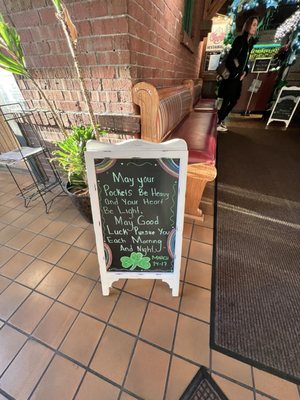 May your
Pockets Be Heavy
and Your Heart
Be Light.
May Good
Luck Pursue You
Each Morning
And Night!
MARCH
14-17